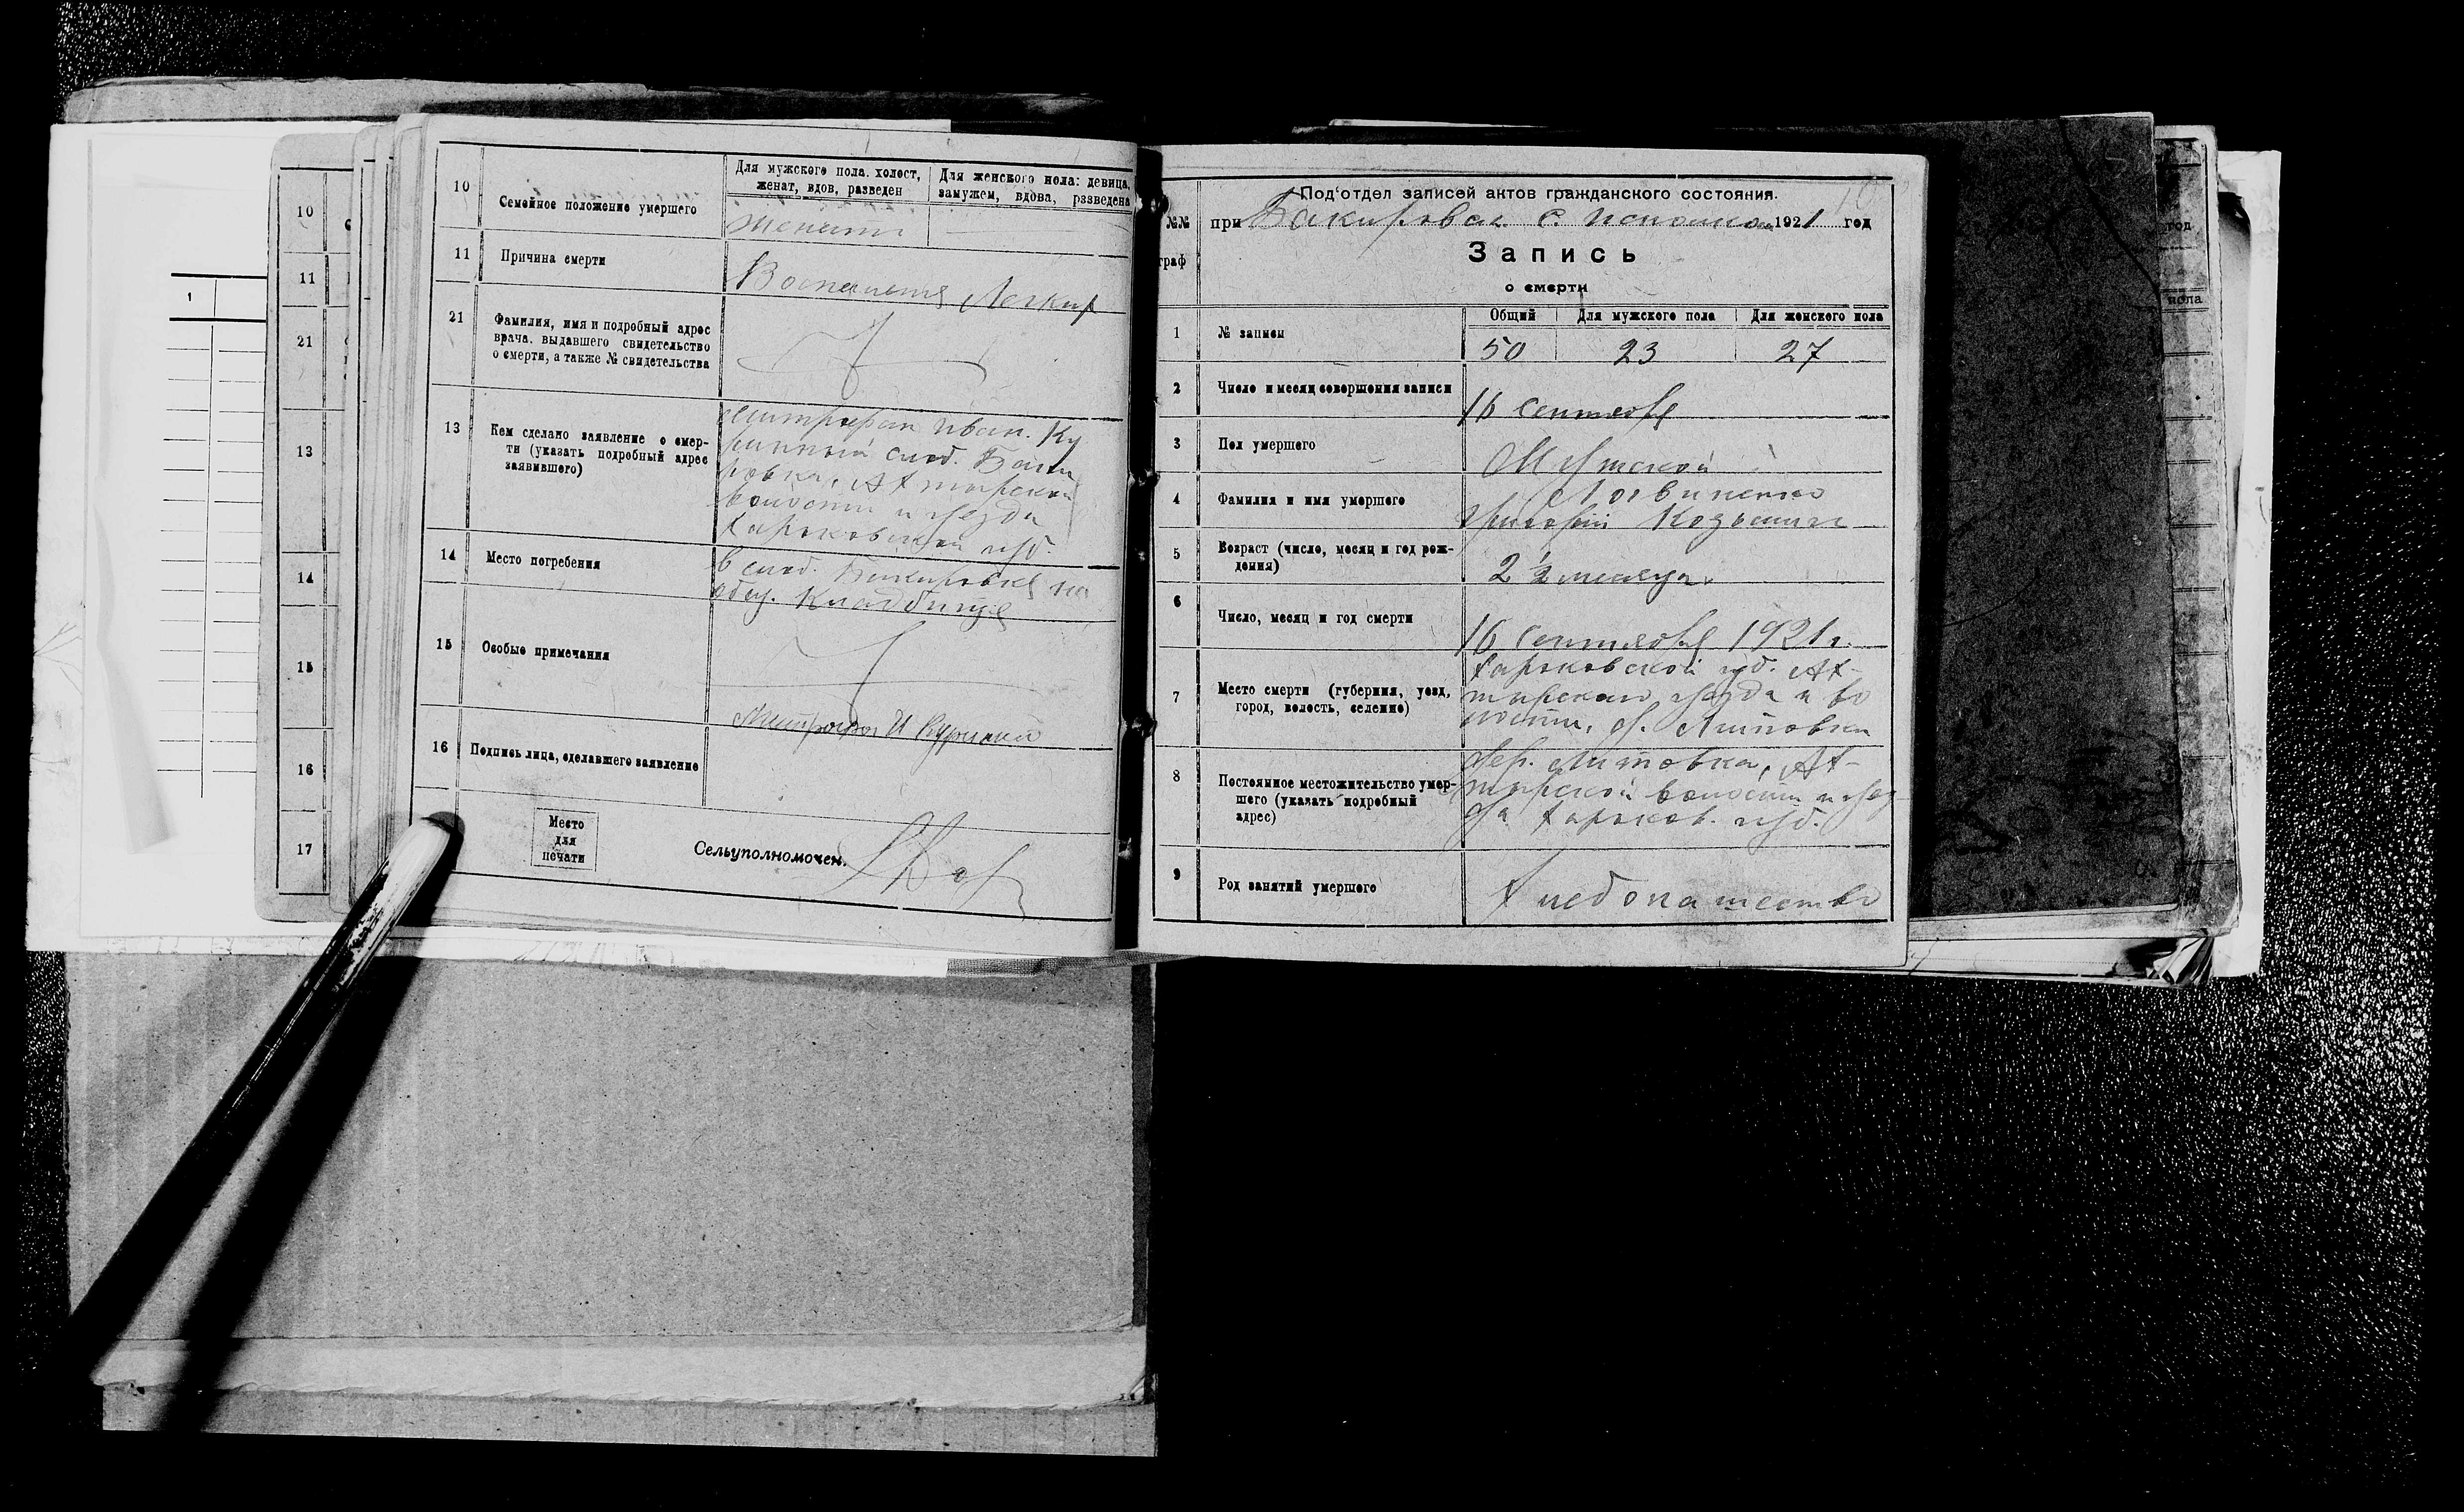 10
Семейное положение умершего
Для мужского пола. холост,
женат, вдов, разведен
Для женского пола: девица,
замужем, вдова, рззведена
женат
11
Причина смерти
Воспаление Легких
21
Фамилия, имя и подробный адрес
врача. выдавшего свидетельство
о смерти, а также № свидетельства
13
Кем сделано заявление о смер-
ти (указать подробный адрес
заявившего)
Митрофан Иван. Ку
ринный слоб. Баки
ровка, Ахтырской
волости и уезда
Харьковской губ.
14
Место погребения
в слоб. Бакировке на
общ. Кладбище
15
Особые примечания
16
Подпись лица, сделавшего заявление
Митрофан И Куриний
Место
для
печати
Сельуполномочен.
10
11
21
13
14
15
16
17
1
№№
граф
Под'отдел записей актов гражданского состояния.
при Бакировск. с. исполком 1921 год
Запись
о смерти
1
№ записи
Общий
Для мужского пола
Для женского пола
50
23
27
2
Число и месяц совершения записи
16 сентября
3
Пол умершего
Мужской
4
Фамилия и имя умершего
Логвиненко
Григорий Козьмич
5
Возраст (число, месяц и год рож-
дения)
2 ½ месяца.
6
Число, месяц и год смерти
16 сентября 1921 г.
7
Место смерти (губерния, уезд,
город, волость, селение)
Харьковской губ. Ах-
тырского уезда и во
лости, д. Литовка
8
Постоянное местожительство умер-
шего (указать подробный
адрес)
дер. Литовка, Ах-
тырской волости и уез-
да Харьков. губ.
9
Род занятий умершего
Хлебопашество
год
пола